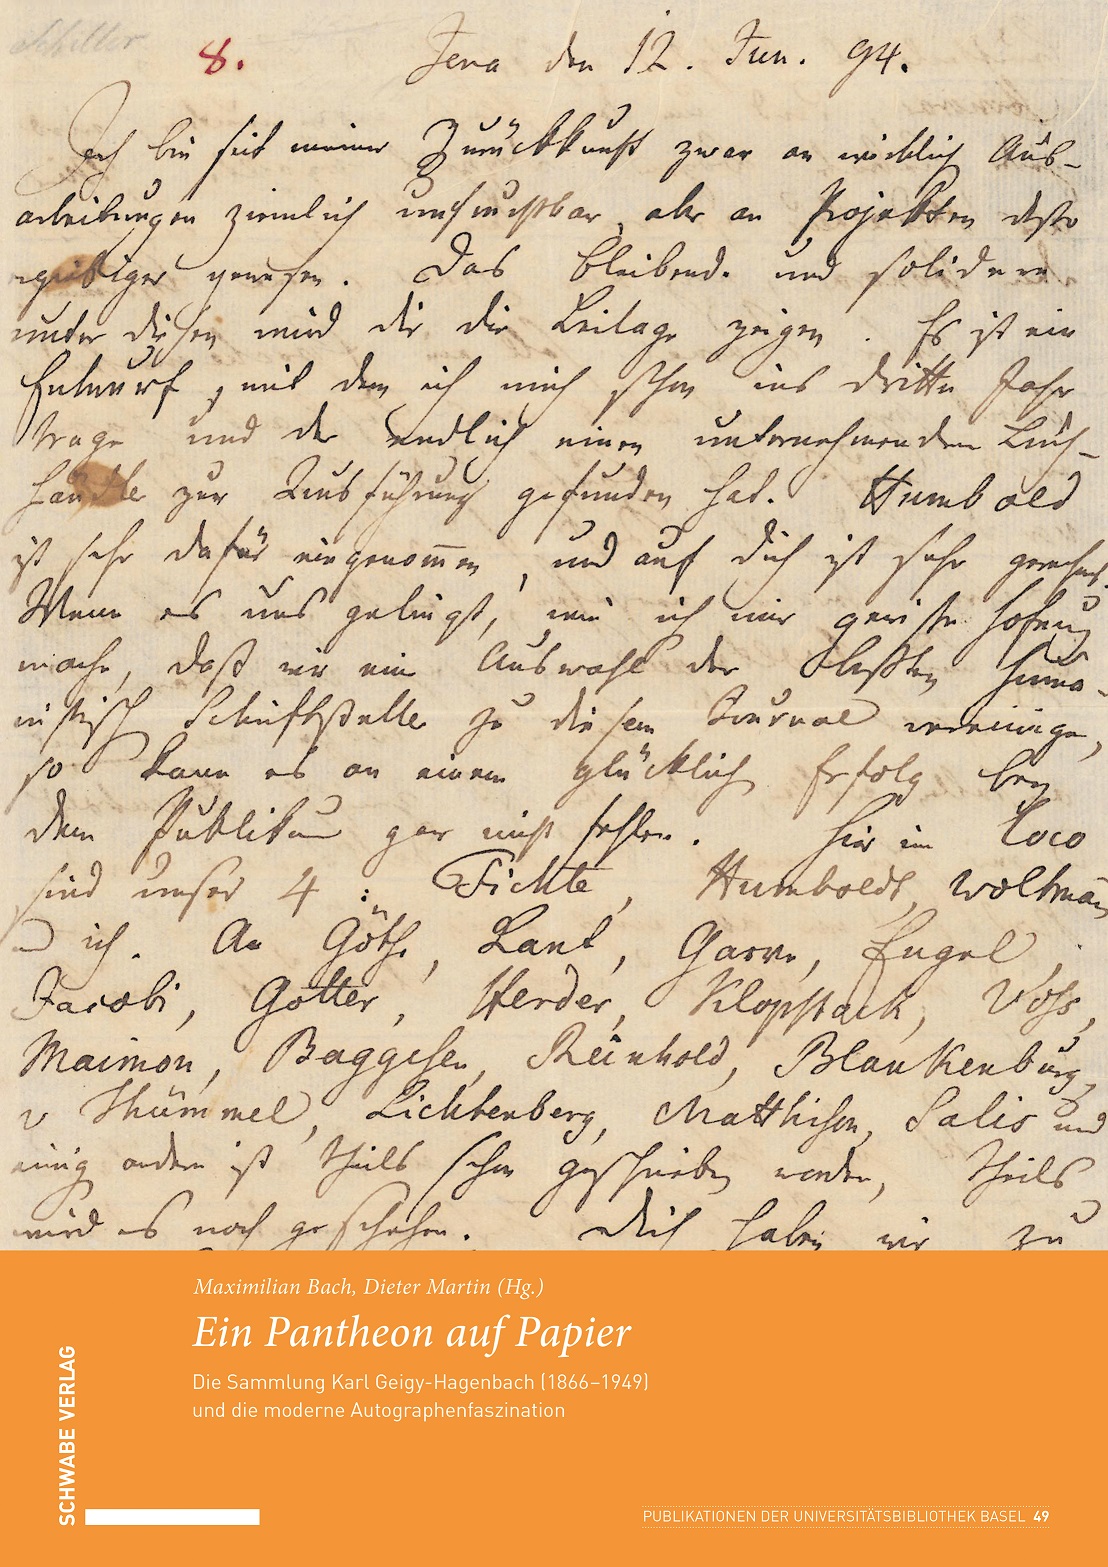 Schiller
8.
Jena den 12. Jun. 94.
Ich bin seit meiner Zurückkunft zwar an wirklich Aus-
arbeitungen ziemlich unfruchtbar, aber an Projekten desto
ergiebiger gewesen. Das bleibende und solidere
unter diesen wird dir die Beilage zeigen. Es ist ein
Entwurf, mit dem ich mich schon ins dritte Jahr
trage und der endlich einen unternehmenden Buch-
händler zur Ausführung gefunden hat. Humbold
ist sehr dafür eingenommen, und auf dich ist sehr gerechnet.
Wenn es uns gelingt, wie ich mir gewisse Hofnung
mache, daß wir eine Auswahl der beßten huma-
nistisch Schriftsteller zu diesem Journal vereinigen,
so kann es an einem glücklich Erfolg bey
dem Publikum gar nicht fehlen. Hier in Loco
sind unser 4: Fichte, Humboldt, Woltmañ
ich. An Göthe, Kant, Garve, Engel,
Jacobi, Gotter, Herder, Klopstock, Voss,
Maimon, Baggesen, Reinhold, Blankenburg,
v Thümmel, Lichtenberg, Matthison, Salis und
einige andere ist theils schon geschrieben worden, theils
wird es noch geschehen. Dich haben wir zu
Maximilian Bach, Dieter Martin (Hg.)
Ein Pantheon auf Papier
Die Sammlung Karl Geigy-Hagenbach (1866–1949)
und die moderne Autographenfaszination
SCHWABE VERLAG
PUBLIKATIONEN DER UNIVERSITÄTSBIBLIOTHEK BASEL 49